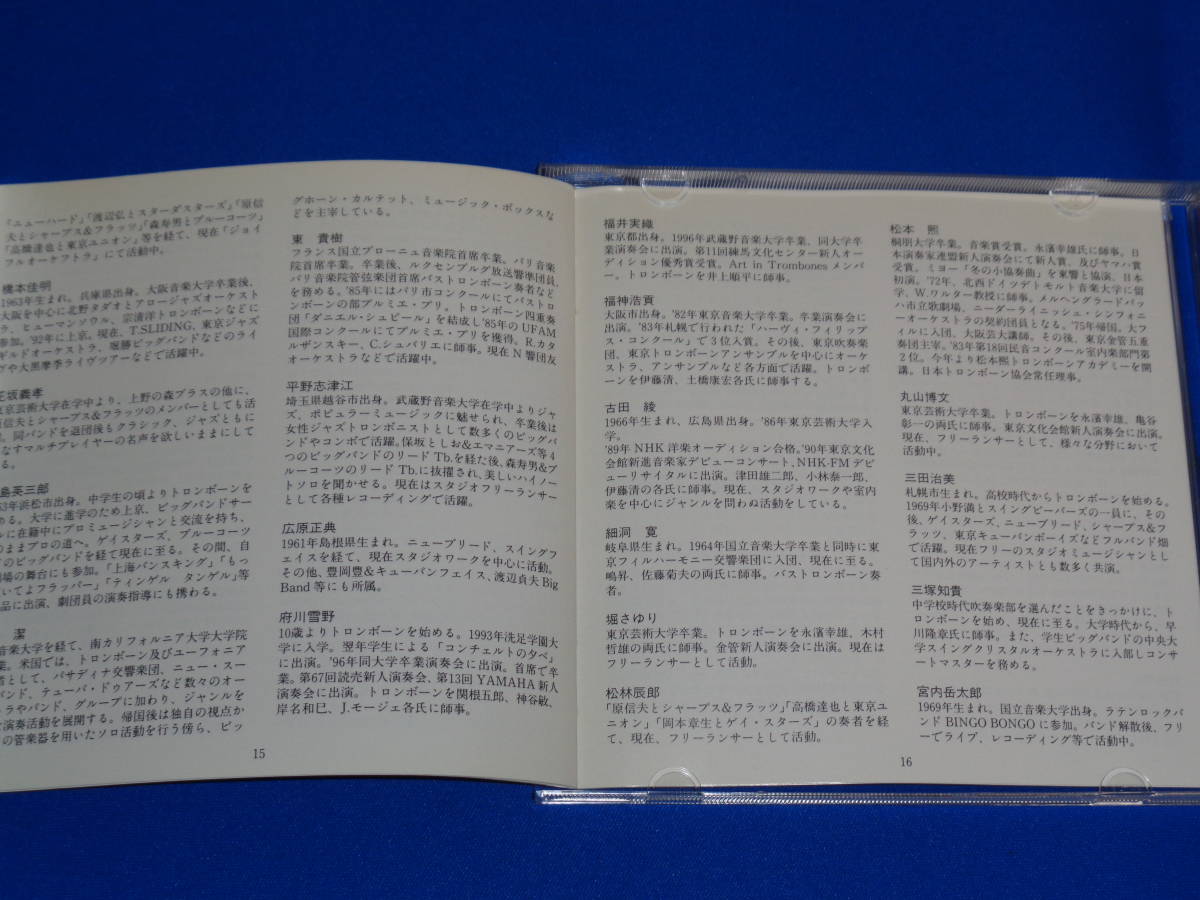 「ニューハード」「渡辺弘とスターダスターズ」「原信
夫とシャープス&フラッツ」「森寿男とブルーコーツ」
「高橋達也と東京ユニオン」等を経て、現在「ジョイ
フルオーケフトラ」にて活動中。
橋本佳明
1963年生まれ。兵庫県出身。大阪音楽大学卒業後、
大阪を中心に北野タダオとアロージャズオーケスト
ラ、ヒューマンソウル、宗清洋トロンボーンなどに
参加。'92年に上京。現在、T.SLIDING、東京ジャズ
ギルドオーケストラ、堀勝ビッグバンドなどのライ
ヴや大黒摩季ライヴツアーなどで活躍中。
坂義孝
東京芸術大学在学中より、上野の森ブラスの他に、
原信夫とシャープス&フラッツのメンバーとしても活
同バンドを退団後もクラシック、ジャズともに
なすマルチプレイヤーの名声を欲しいままにして
る。
島英三郎
3年浜松市出身。中学生の頃よりトロンボーンを
める。大学に進学のため上京、ビッグバンドサー
ルに在籍中にプロミュージシャンと交流を持ち、
のままプロの道へ。ゲイスターズ、ブルーコーツ
のビッグバンドを経て現在に至る。その間、自
場の舞台にも参加。「上海バンスキング」「もっ
いてよフラッパー」「ティンゲル タンゲル」等
品に出演、劇団員の演奏指導にも携わる。
潔
音楽大学を経て、南カリフォルニア大学大学院
業。米国では、トロンボーン及びユーフォニア
者として、パサディナ交響楽団、ニュー・スー
バンド、テューバ・ドゥアーズなど数々のオー
トラやバンド、グループに加わり、ジャンルを
た演奏活動を展開する。帰国後は独自の視点か
の管楽器を用いたソロ活動を行う傍ら、ビッ
グホーン・カルテット、ミュージック・ボックスな
どを主宰している。
東 貴樹
フランス国立ブローニュ音楽院首席卒業。パリ音楽
院首席卒業。卒業後、ルクセンブルグ放送響準団員、
パリ音楽院管弦楽団首席バストロンボーン奏者など
を務める。'85年にはパリ市コンクールにてバストロ
ンボーンの部プルミエ・プリ。トロンボーン四重奏
団「ダニエル・シュピール」を結成し'85年のUFAM
国際コンクールにてプルミエ・プリを獲得。R.カタ
ルザンスキー、C.シュバリエに師事。現在N響団友
オーケストラなどで活躍中。
平野志津江
埼玉県越谷市出身。武蔵野音楽大学在学中よりジャ
ズ、ポピュラーミュージックに魅せられ、卒業後は
女性ジャズトロンボニストとして数多くのビッグバ
ンドやコンボで活躍。保坂としお&エマニアーズ等4
つのビッグバンドのリードTb.を経た後、森寿男&ブ
ルーコーツのリードTb.に抜擢され、美しいハイノー
トソロを聞かせる。現在はスタジオフリーランサー
として各種レコーディングで活躍。
広原正典
1961年島根県生まれ。ニューブリード、スイングフ
ェイスを経て、現在スタジオワークを中心に活動。
その他、豊岡豊&キューバンフェイス、渡辺貞夫Big
Band等にも所属。
府川雪野
10歳よりトロンボーンを始める。1993年洗足学園大
学に入学。翌年学生による「コンチェルトの夕べ」
に出演。'96年同大学卒業演奏会に出演。首席で卒
業。第67回読売新人演奏会、第13回YAMAHA新人
演奏会に出演。トロンボーンを関根五郎、神谷敏、
岸名和巳、J.モージェ各氏に師事。
15
福井実織
東京都出身。1996年武蔵野音楽大学卒業、同大学卒
業演奏会に出演。第11回練馬文化センター新人オー
ディション優秀賞受賞。Art in Trombonesメンバ
ー。トロンボーンを井上順平に師事。
福神浩貢
大阪市出身。'82年東京音楽大学卒業。卒業演奏会に
出演。'83年札幌で行われた「ハーヴィ・フィリップ
ス・コンクール」で3位入賞。その後、東京吹奏楽
団、東京トロンボーンアンサンブルを中心にオーケ
ストラ、アンサンブルなど各方面で活躍。トロンボ
ーンを伊藤清、土橋康宏各氏に師事する。
古田 綾
1966年生まれ、広島県出身。'86年東京芸術大学入
学。
'89年NHK洋楽オーディション合格。'90年東京文化
会館新進音楽家デビューコンサート、NHK-FMデビ
ューリサイタルに出演。津田雄二郎、小林泰一郎、
伊藤清の各氏に師事。現在、スタジオワークや室内
楽を中心にジャンルを問わぬ活動をしている。
細洞 寛
岐阜県生まれ。1964年国立音楽大学卒業と同時に東
京フィルハーモニー交響楽団に入団、現在に至る。
嶋昇、佐藤菊夫の両氏に師事。バストロンボーン奏
者。
堀さゆり
東京芸術大学卒業。トロンボーンを永濱幸雄、木村
哲雄の両氏に師事。金管新人演奏会に出演。現在は
フリーランサーとして活動。
松林辰郎
「原信夫とシャープス&フラッツ」「高橋達也と東京ユ
ニオン」「岡本章生とゲイ・スターズ」の奏者を経
て、現在、フリーランサーとして活動。
松本 煕
桐朋大学卒業。音楽賞受賞。永濱幸雄氏に師事。日
本演奏家連盟新人演奏会にて新人賞、及びヤマハ賞
受賞。ミヨー「冬の小協奏曲」を東響と協演、日本
初演。'72年、北西ドイツデトモルト音楽大学に留
学、W.ワルター教授に師事。メルヘングラードバッ
ハ市立歌劇場、ニーダーライニッシュ・シンフォニ
ーオーケストラの契約団員となる。'75年帰国。大フ
ィルに入団、大阪芸大講師。その後、東京金管五重
奏団主宰。'83年第18回民音コンクール室内楽部門第
2位。今年より松本煕トロンボーンアカデミーを開
講。日本トロンボーン協会常任理事。
丸山博文
東京芸術大学卒業。トロンボーンを永濱幸雄、亀谷
彰一の両氏に師事。東京文化会館新人演奏会に出演。
現在、フリーランサーとして、様々な分野において
活動中。
三田治美
札幌市生まれ。高校時代からトロンボーンを始める。
1969年小野満とスイングビーバーズの一員に、その
後、ゲイスターズ、ニューブリード、シャープス&フ
ラッツ、東京キューバンボーイズなどフルバンド畑
で活躍。現在フリーのスタジオミュージシャンとし
て国内外のアーティストとも数多く共演。
三塚知貴
中学校時代吹奏楽部を選んだことをきっかけに、ト
ロンボーンを始め、現在に至る。大学時代から、早
川隆章氏に師事。また、学生ビッグバンドの中央大
学スイングクリスタルオーケストラに入部しコンサ
ートマスターを務める。
宮内岳太郎
1969年生まれ。国立音楽大学出身。ラテンロックバ
ンドBINGO BONGOに参加。バンド解散後、フリ
ーでライブ、レコーディング等で活動中。
16